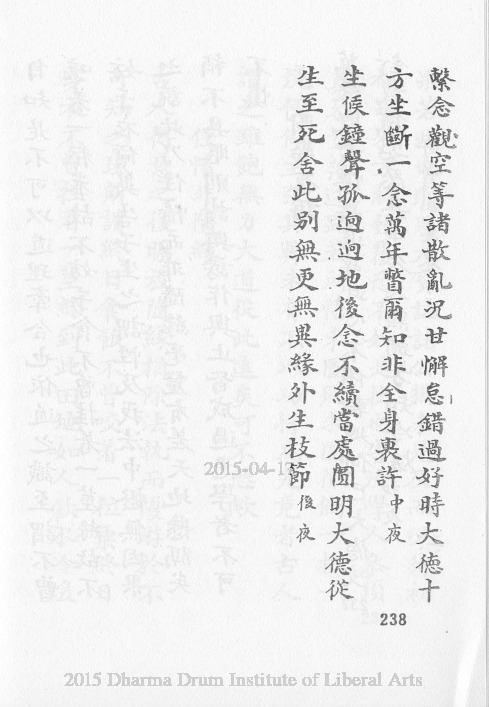 繫念觀空等諸散亂況甘懈怠錯過好時大德十
方坐斷一念萬年瞥爾知非全身裏許中夜
坐候鐘聲孤迥迥地後念不續當處圓明大德從
生至死舍此別無更無異緣外生枝節後夜
2015-04-13
238
2015 Dharma Drum Institute of Liberal Arts